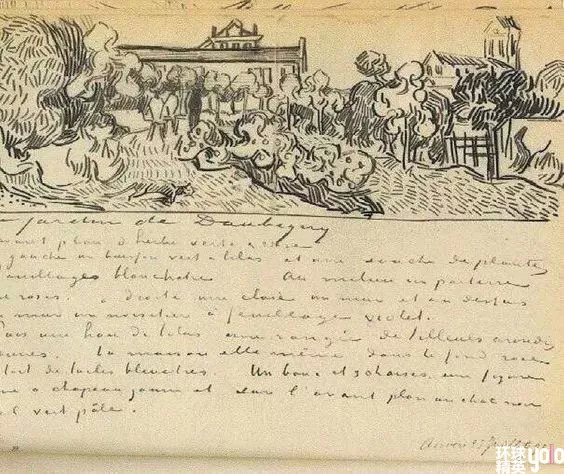 jardin de Daubigny
avant plan d'herbe verte & rose
gauche un buisson vert & lilas et une souche de plantes
feuillages blanchatre Au milieu un parterre
roses. à droite une claie un mur et au dessus
mur un noisetier à feuillage violet.
une haie de lilas une rangée de tilleuls arrondis
La maison elle même dans le fond rose
toit de tuiles bleuatres. Un banc et 3 chaises, une figure
à chapeau jaune et sur l'avant plan un chat noir
vert pâle.
Auvers 23 Juillet 90
环球
精英